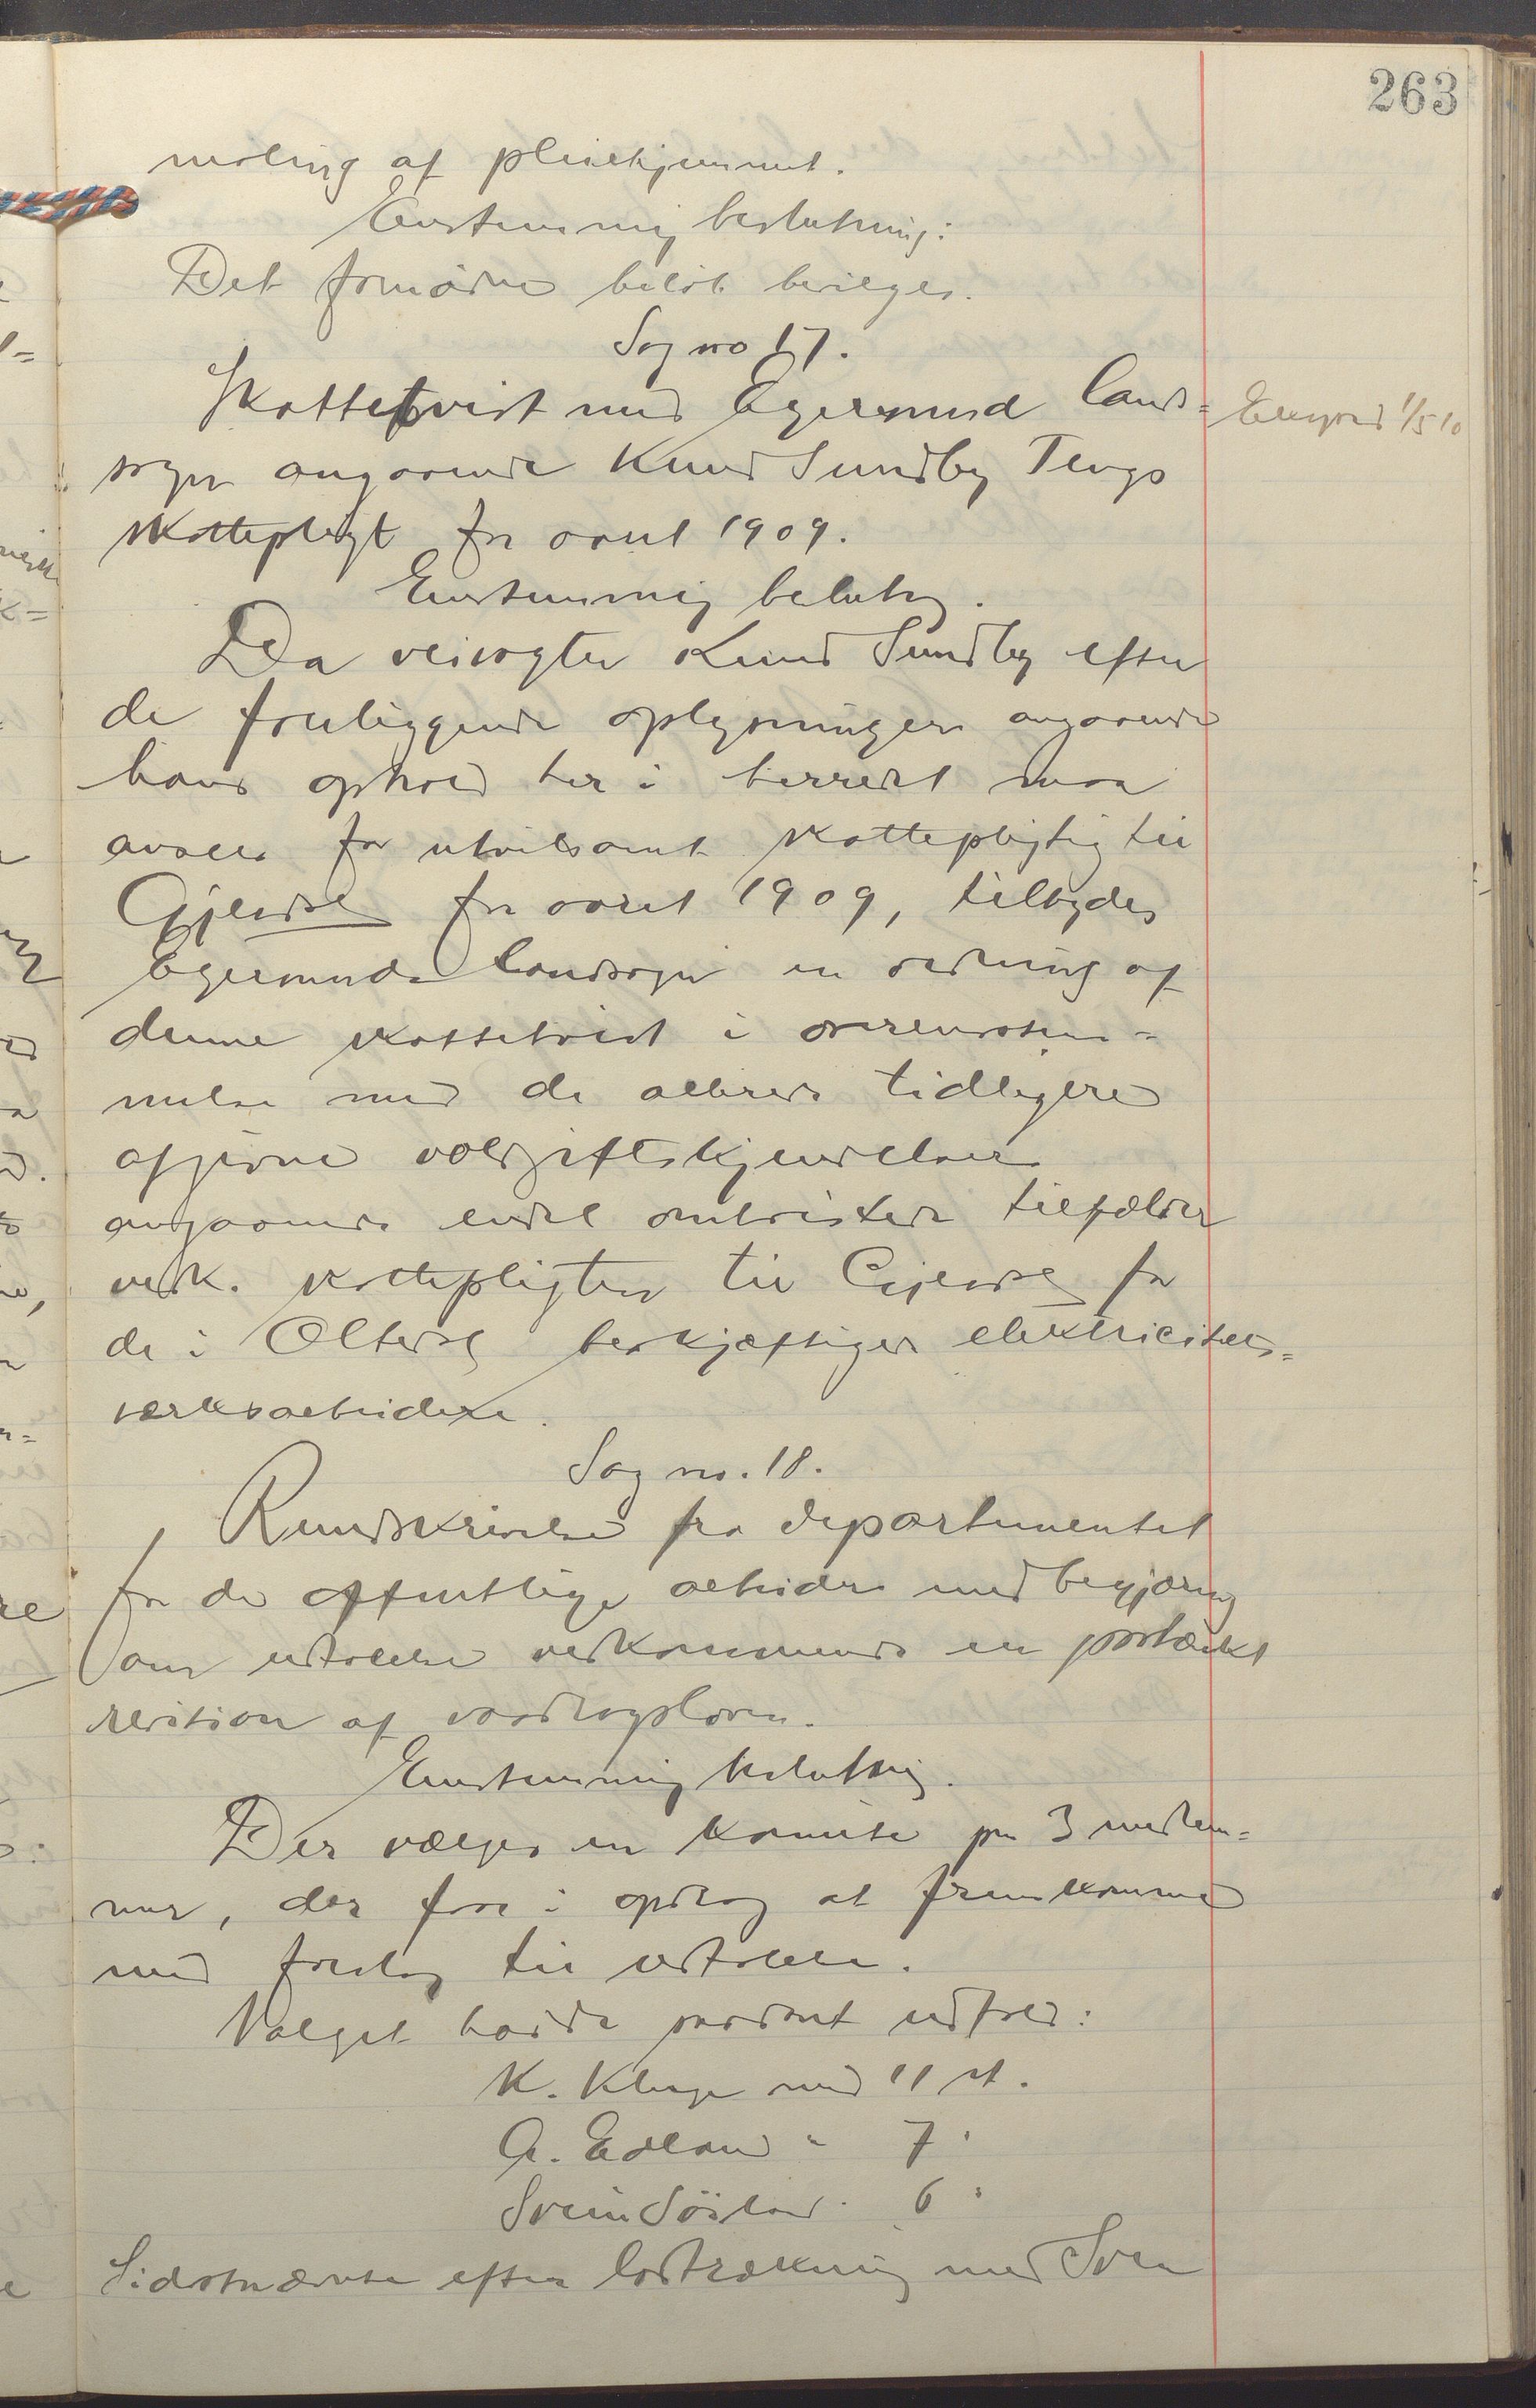 263
maling af pleiehjemmet.
Enstemmig beslutning:
Det fornødne beløb bevilges.
Sag no 17.
Skattetvist med Egersund land=
sogn angaaende Knud Sundby Tengs
skattepligt for aaret 1909.
Enstemmig beslutng.
Da veivogter Knud Sundby efter
de foreliggende oplysninger angaaende
hans ophold her i herredet maa
ansees for utvilsomt skattepligtig til
Gjesdal for aaret 1909, tilbydes
Egersunds landsogn en ordning af
denne skattetvist i overensstem=
melse med de allerede tidligere
afgivne voldgiftskjendelser
angaaende endel omtvistede tilfælder
vedk. skattepligten til Gjesdal for
de i Oltedal beskjæftiget elektricitets=
værksarbeidere.
Sag no. 18.
Rundskrivelse fra departementet
for de offentlige arbeider med begjæring
om udtalelse vedkommende en påtænkt
revision af vasdragsloven.
Enstemmig beslutning.
Der vælges en komite paa 3 medlem=
mer, der faar i opdrag at fremkomme
med forslag til udtalelse.
Valget havde saadant udfald:
K. Kluge med 11 st.
A. Edland " 7 "
Svein Søiland " 6 "
Sidstnævnte efter lodtrækning med Sven